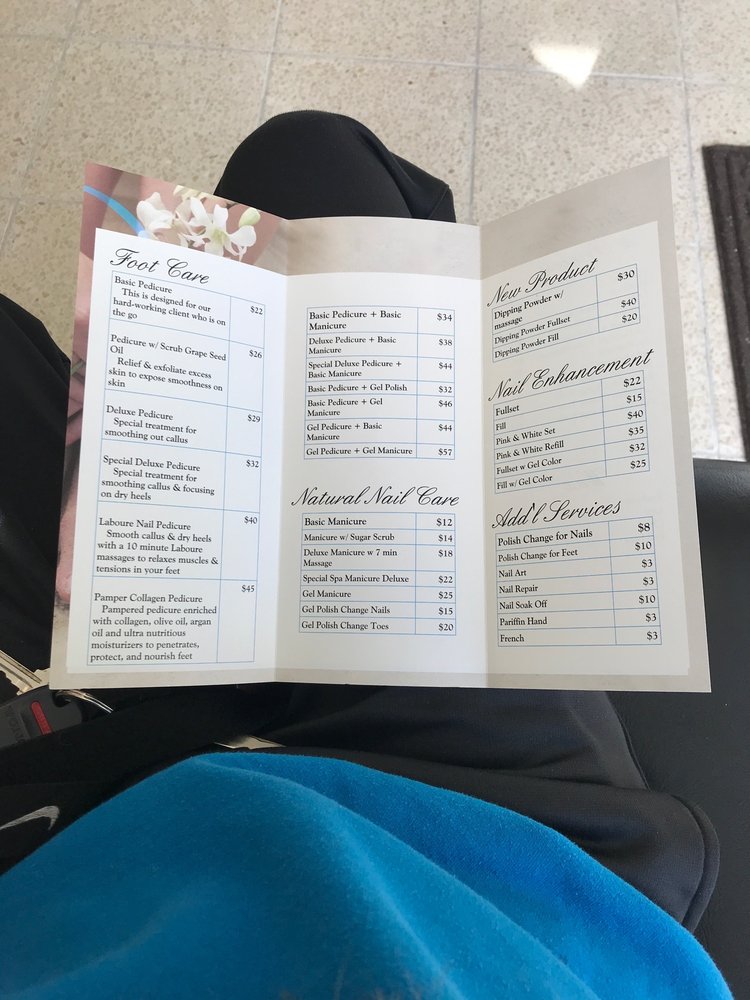 Foot Care
Basic Pedicure $22
This is designed for our
hard-working client who is on
the go
Pedicure w/ Scrub Grape Seed $26
Oil
Relief & exfoliate excess
skin to expose smoothness on
skin
Deluxe Pedicure $29
Special treatment for
smoothing out callus
Special Deluxe Pedicure $32
Special treatment for
smoothing callus & focusing
on dry heels
Laboure Nail Pedicure $40
Smooth callus & dry heels
with a 10 minute Laboure
massages to relaxes muscles &
tensions in your feet
Pamper Collagen Pedicure $45
Pampered pedicure enriched
with collagen, olive oil, argan
oil and ultra nutritious
moisturizers to penetrates,
protect, and nourish feet
Basic Pedicure + Basic $34
Manicure
Deluxe Pedicure + Basic $38
Manicure
Special Deluxe Pedicure + $44
Basic Manicure
Basic Pedicure + Gel Polish $32
Basic Pedicure + Gel $46
Manicure
Gel Pedicure + Basic $44
Manicure
Gel Pedicure + Gel Manicure $57
Natural Nail Care
Basic Manicure $12
Manicure w/ Sugar Scrub $14
Deluxe Manicure w 7 min $18
Massage
Special Spa Manicure Deluxe $22
Gel Manicure $25
Gel Polish Change Nails $15
Gel Polish Change Toes $20
New Product
Dipping Powder w/ $30
massage
Dipping Powder Fullset $40
Dipping Powder Fill $20
Nail Enhancement
Fullset $22
Fill $15
Pink & White Set $40
Pink & White Refill $35
Fullset w Gel Color $32
Fill w/ Gel Color $25
Add'l Services
Polish Change for Nails $8
Polish Change for Feet $10
Nail Art $3
Nail Repair $3
Nail Soak Off $10
Pariffin Hand $3
French $3